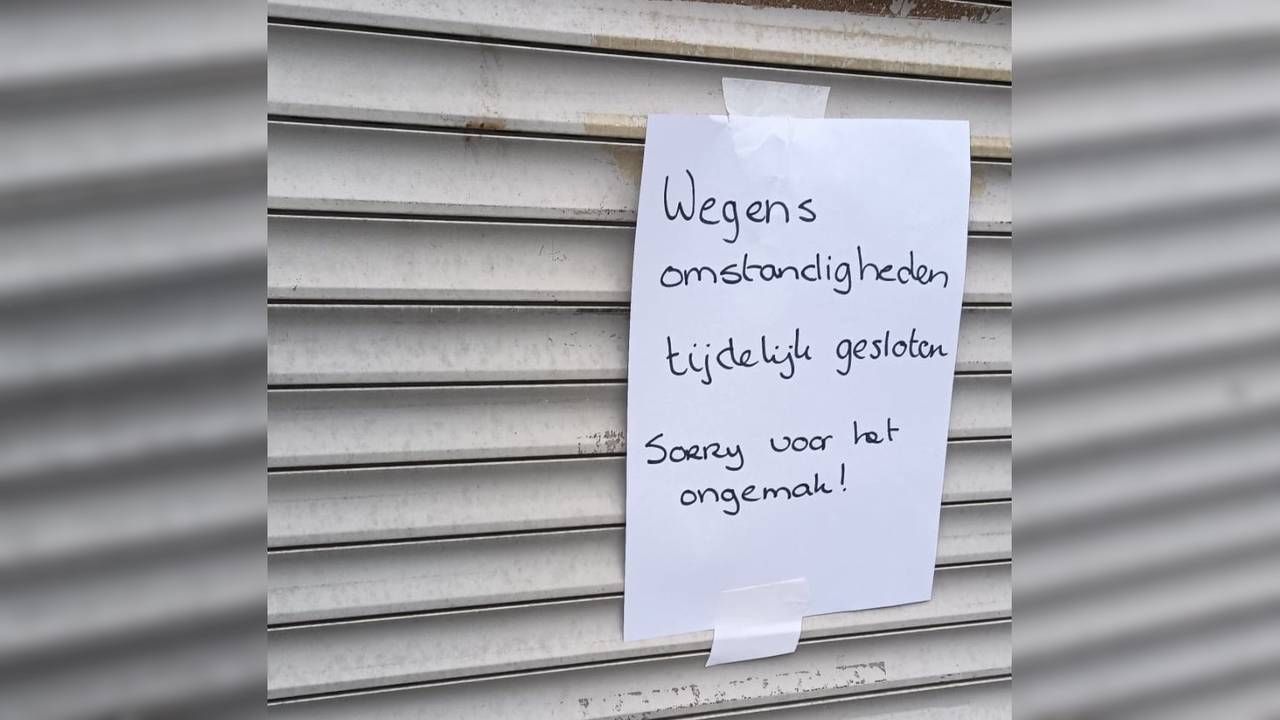 Wegens
omstandigheden
tijdelijk gesloten
Sorry voor het
ongemak!